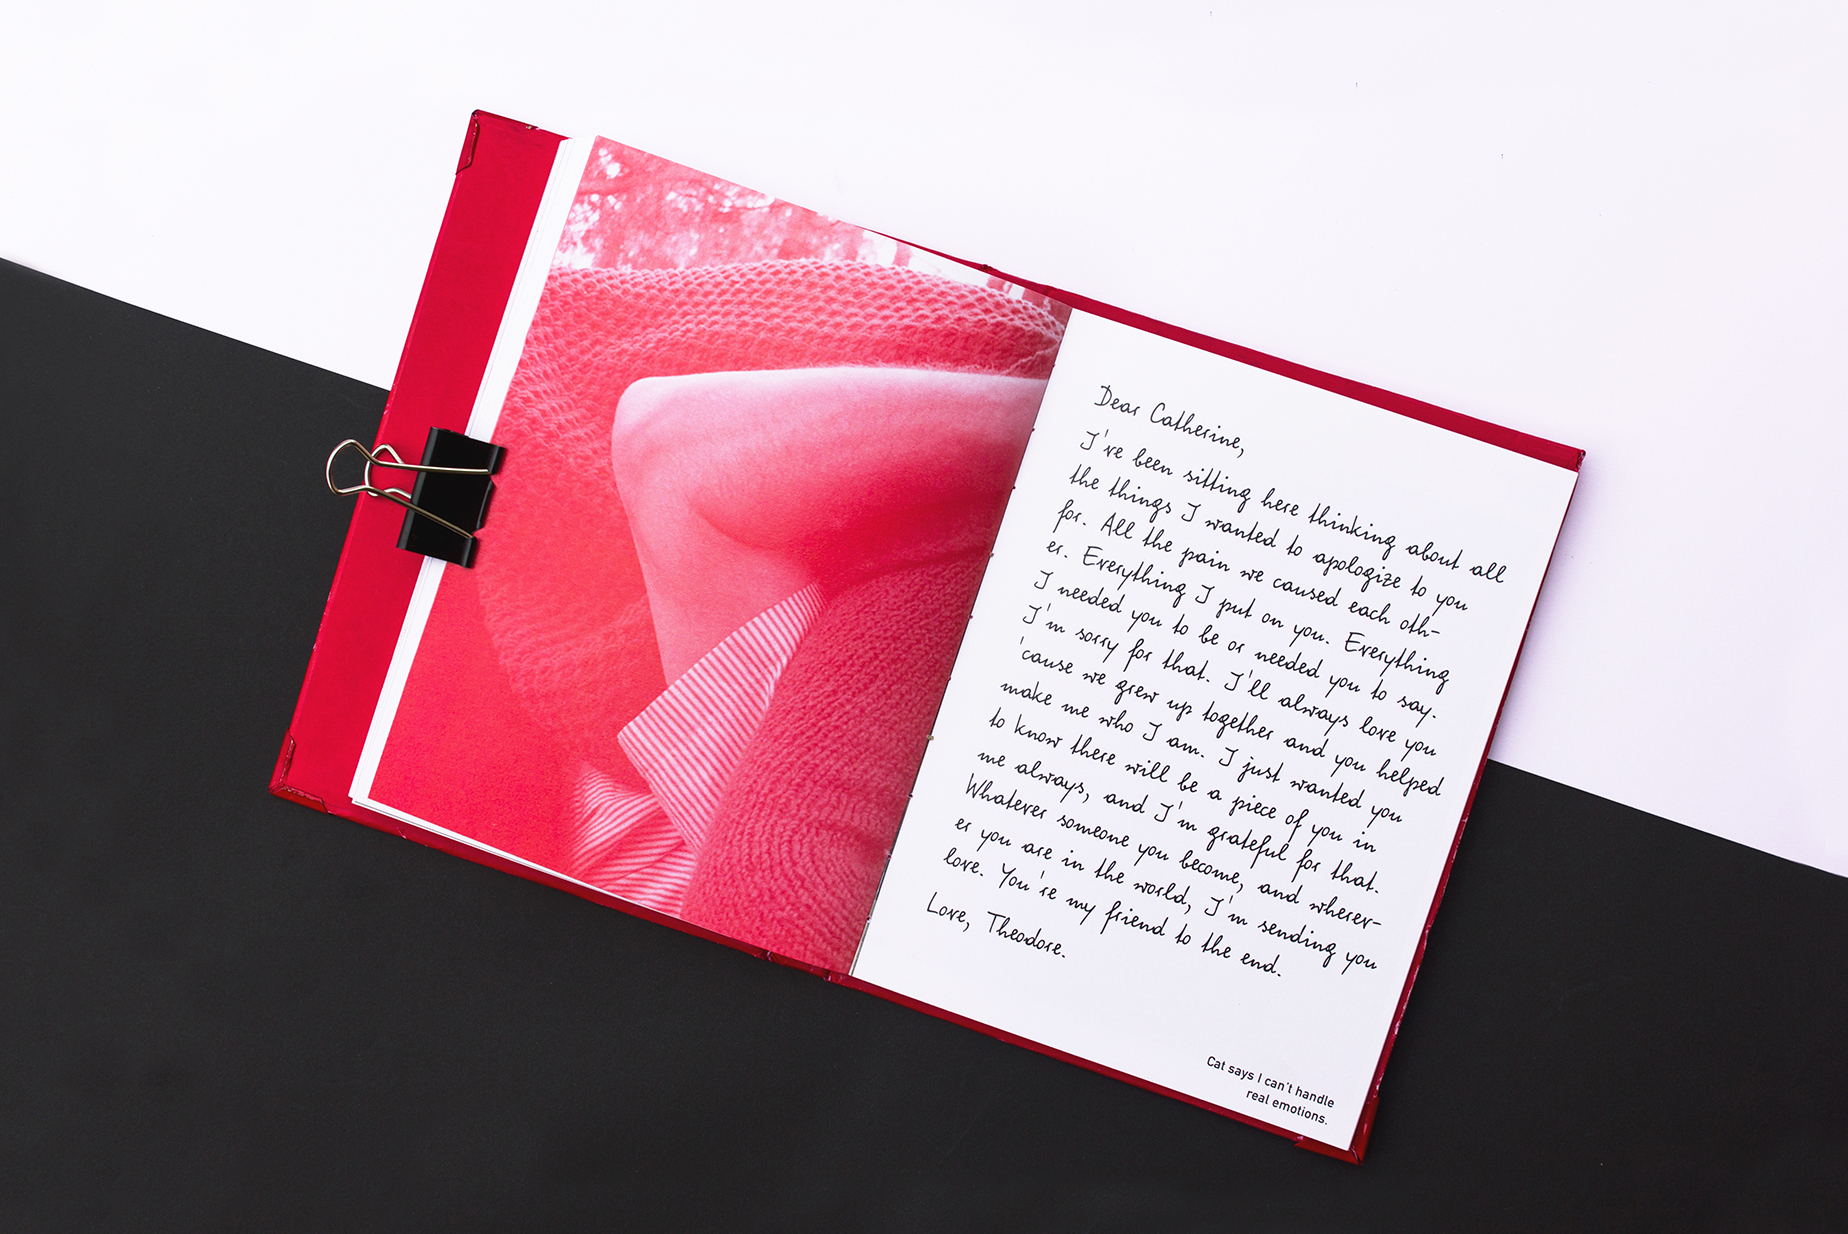 Dear Catherine,
I've been sitting here thinking about all
the things I wanted to apologize to you
for. All the pain we caused each oth-
er. Everything I put on you. Everything
I needed you to be or needed you to say.
I'm sorry for that. I'll always love you
'cause we grew up together and you helped
make me who I am. I just wanted you
to know there will be a piece of you in
me always, and I'm grateful for that.
Whatever someone you become, and wherev-
er you are in the world, I'm sending you
love. You're my friend to the end.
Love, Theodore.
Cat says I can't handle
real emotions.